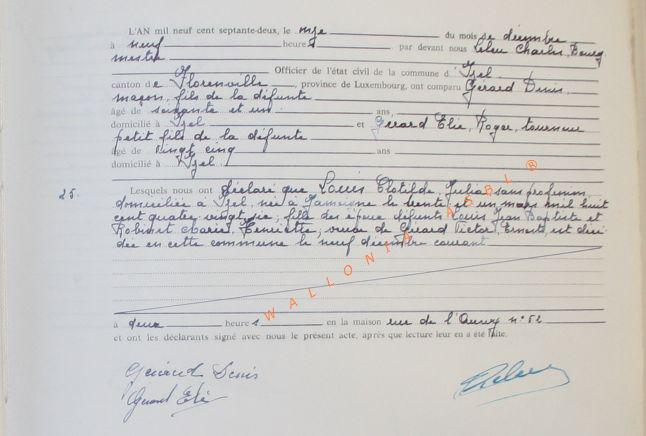 L'AN mil neuf cent septante-deux, le onze du mois de décembre
à neuf heures par devant nous Leleu Charles, Bourg
mestre
Officier de l'état civil de la commune d' Izel
canton de Florenville, province de Luxembourg, ont comparu Gérard Denis,
maçon, fils de la défunte
âgé de soixante et un ans
domicilié à Izel et Gérard Elie, Roger, tourneur
petit fils de la défunte
âgé de vingt cinq ans
domicilié à Izel
25. Lesquels nous ont déclaré que Louis Clotilde, Julia, sans profession,
domiciliée à Izel, née à Jamoigne le trente et un mars mil huit
cent quatre vingt six, fille des époux défunts Louis Jean Baptiste et
Robinet Marie, Henriette, veuve de Gérard Victor, Ernest, est décé
dée en cette commune le neuf décembre courant
à deux heures en la maison rue de l'Aunoy n° 52
et ont les déclarants signé avec nous le présent acte, après que lecture leur en a été faite.
Gérard Denis
Gérard Elie
WALLONIA ASBL ®